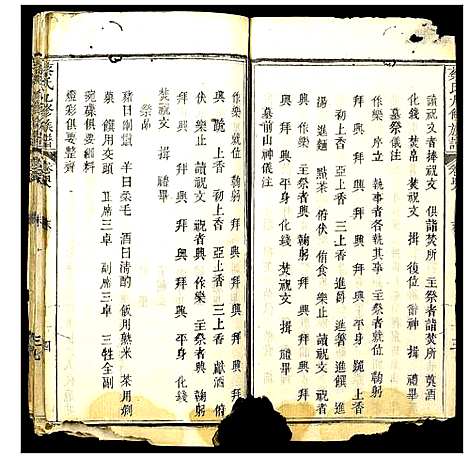 蔡氏九修族譜
讀祝文者捧祝文 俱詣焚所 主祭者詣焚所 奠酒
化錢 焚帛 焚祝文 揖 復位 辭神 揖 禮畢
墓祭儀注
序立 執事者各執其事 主祭者就位 鞠躬
作樂 拜 興 拜 興 平身 跪 上香
初上香 亞上香 三上香 進爵 進箸 進饌 進
湯 進麵 點茶 俯伏 侑食 樂止 讀祝文 祝
者興 作樂 主祭者興 鞠躬
拜 興 拜 興 平身 化錢 焚祝文 揖 禮畢
墓前山神儀注
作樂 就位 鞠躬 拜 興 拜 興 拜 興 拜
興 跪 上香 亞上香 三上香 獻酒 俯
伏 樂止 讀祝文 祝者興 作樂 主祭者興 鞠躬
拜 興 拜 興 拜 興 拜 興 平身 化錢
焚祝文 揖 禮畢
祭品
豬曰剛鬣 羊曰柔毛 酒曰清酌 飯用熟米 茶用荊
菓 饌用交頭 正席三卓 副席三卓 三牲全副
碗碟俱要細料
燈彩俱要整齊
蔡氏九修族譜